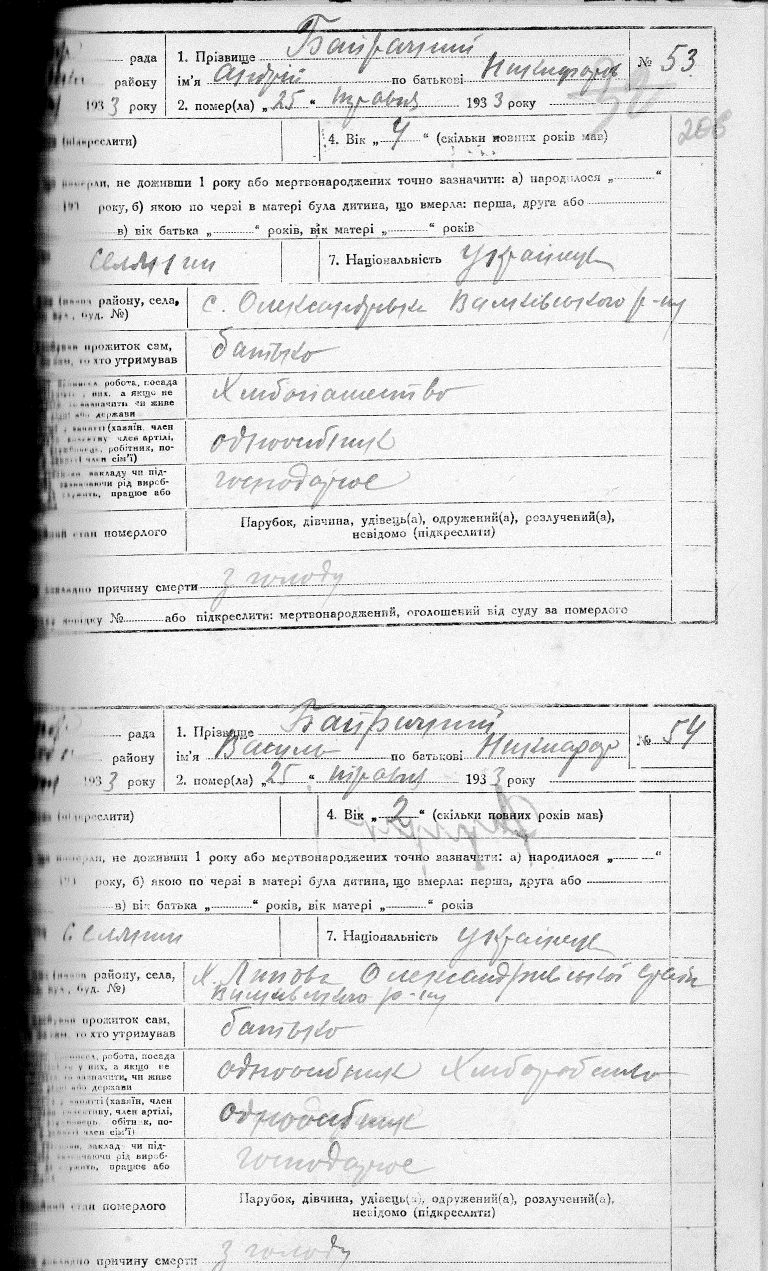 рада 1. Прізвище Байрачний № 53
району ім'я Андрій по батькові Никифоров
193 3 року 2. помер(ла) „ 25 “ травня 193 3 року
206
(підкреслити) 4. Вік „ 4 “ (скільки повних років мав)
не доживши 1 року або мертвонароджених точно вазначити: а) народилося „ “
193 року, б) якою по черзі в матері була дитина, що вмерла: перша, друга або
в) вік батька „ “ років, вік матері „ “ років
селянин 7. Національність українец
району, села, с. Олександрівка Валківського р-ну
буд. №)
прожиток сам, батько
то хто утримував
робота, посада Хлібопашество
них, а якщо не
зазначити чи живе
або держави
(хазяїн, член одноосібник
член артілі,
робітник, по-
член сім'ї)
закладу чи під- господарное
рід вироб-
працює або
стан померлого Парубок, дівчина, удівець(а), одружений(а), розлучений(а),
невідомо (підкреслити)
причину смерти з голоду
довідку № або підкреслити: мертвонароджений, оголошений від суду за померлого
рада 1. Прізвище Байрачний № 54
району ім'я Василь по батькові
193 3 року 2. помер(ла) „ 25 “ травня 193 3 року
(підкреслити) 4. Вік „ 2 “ (скільки повних років мав)
не доживши 1 року або мертвонароджених точно вазначити: а) народилося „ “
193 року, б) якою по черзі в матері була дитина, що вмерла: перша, друга або
в) вік батька „ “ років, вік матері „ “ років
селянин 7. Національність українец
району, села, х. Липова Олександрівської
буд. №) Валківського р-ну
прожиток сам, батько
то хто утримував
робота, посада одноосібник
у них, а якщо не
зазначити, чи живе
або держави
(хазяїн, член одноосібник
член артілі,
по-
член сім'ї)
заклад чи під- господарное
рід вироб-
працює або
стан померлого Парубок, дівчина, удівець(а), одружений(а), розлучений(а),
невідомо (підкреслити)
причину смерти з голоду